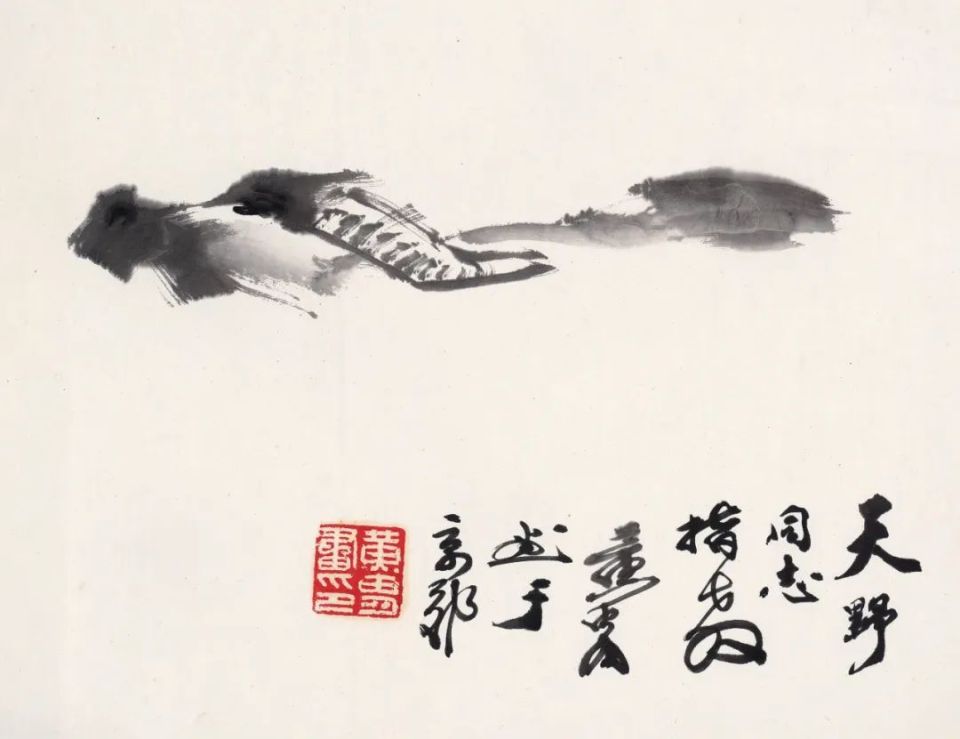 天野
同志
指教
黄胄
画于
京郊
黄胄
畫印